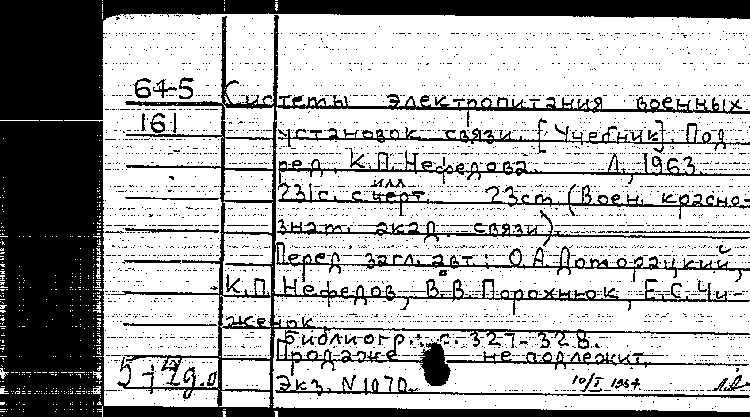 64-5
161
Системы электропитания военных
установок связи. [Учебник]. Под
ред. К.П. Нефедова. Л., 1963.
231с. с илл. черт. 23см. (Воен. красно-
знам. акад. связи).
Перед загл. авт: О.А. Доморацкий,
К.П. Нефедов, В.В. Порохнюк, Е.С. Чи-
женок
Библиогр.: с. 327-328.
Продаже не подлежит.
Экз. N 1070.
10/I 1964